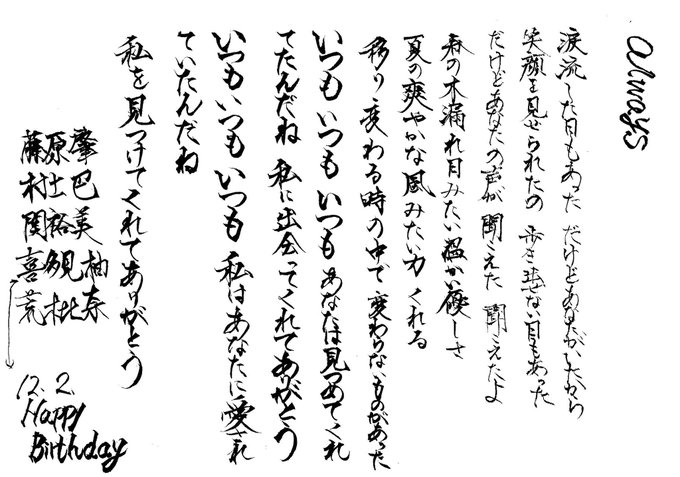 Always
涙流した日もあった だけどあなたがいたから
笑顔を見せられたの 歩き出せない日もあった
だけどあなたの声が聞こえた 聞こえたよ
春の木漏れ日みたい温かい優しさ
夏の爽やかな風みたい力くれる
移り変わる時の中で変わらないものがあった
いつもいつもいつもあなたは見つめてくれ
てたんだね 私に出会ってくれてありがとう
いつもいつもいつも 私はあなたに愛され
ていたんだね
私を見つけてくれてありがとう
藤原肇
村上巴
関裕美
喜多見柚
荒木比奈
12.2
Happy
Birthday